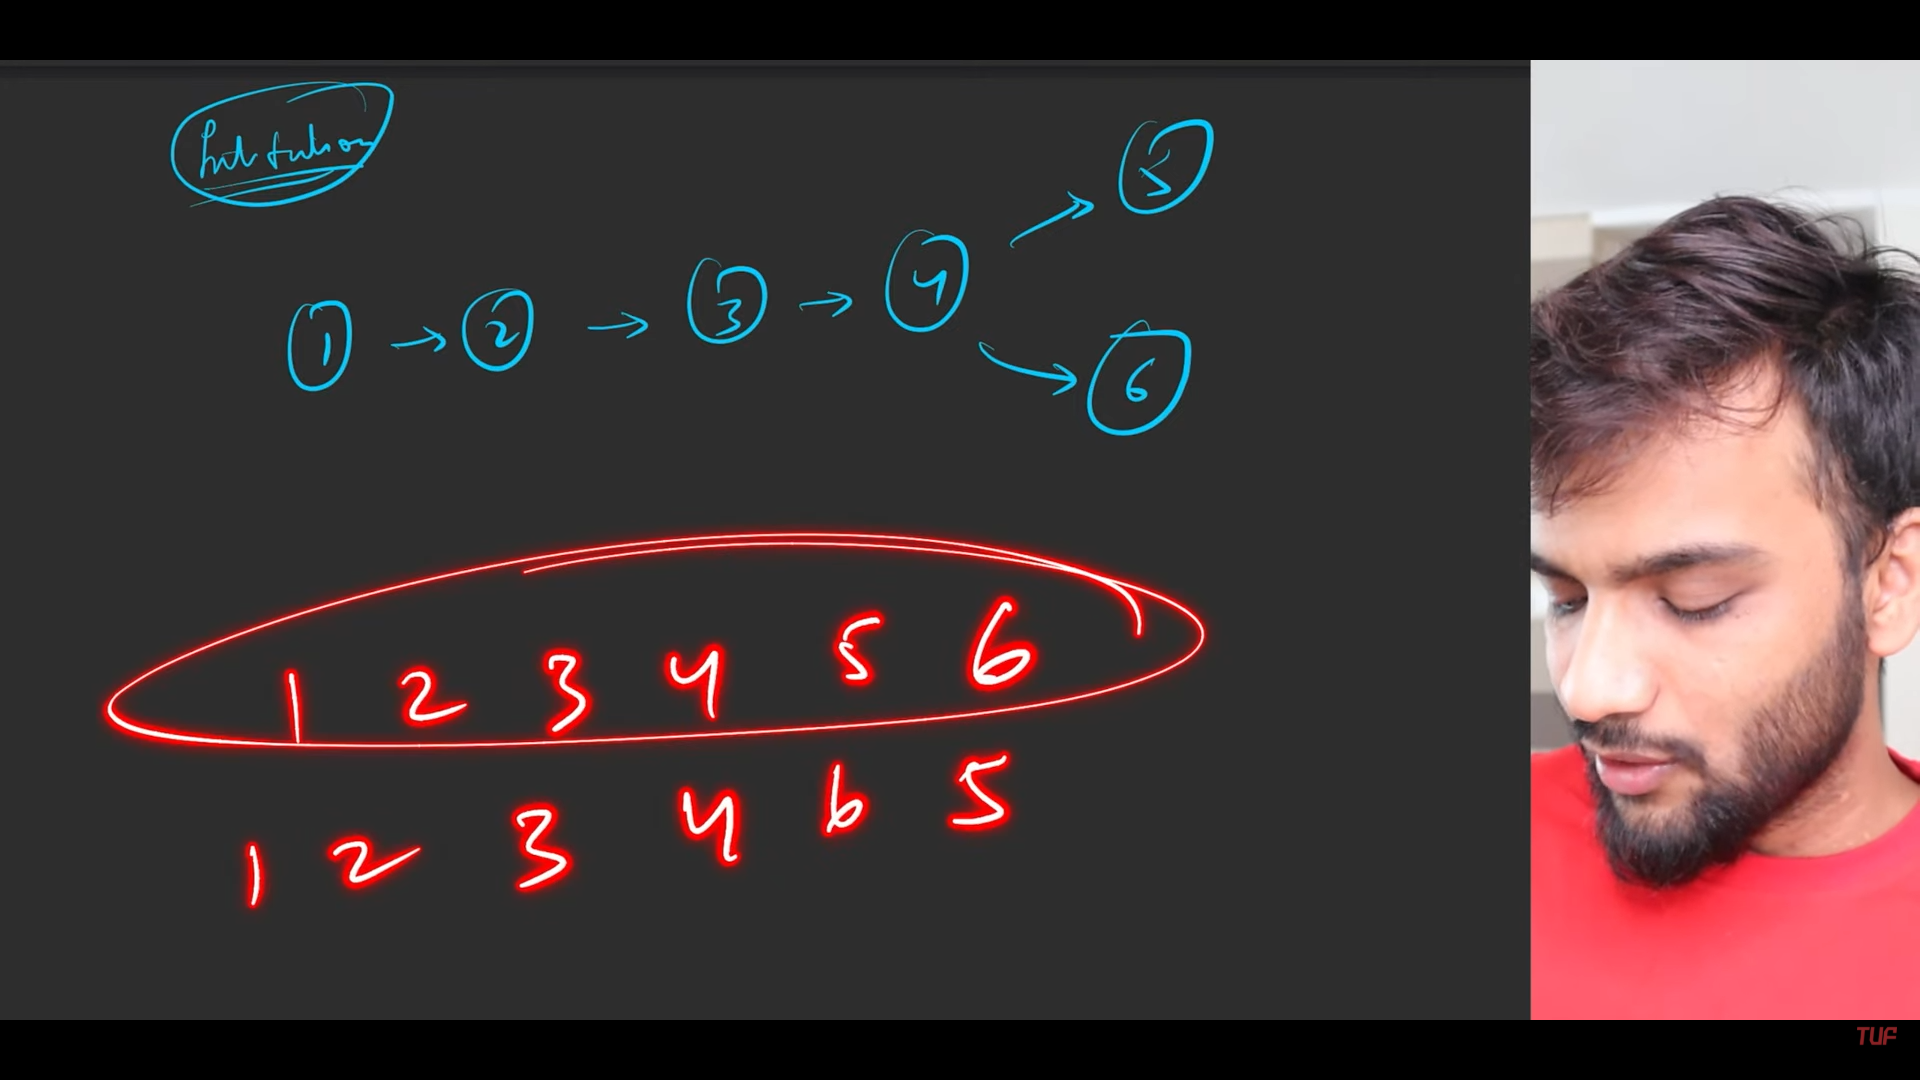 Intution
1 → 2 → 3 → 4 → 5
6
1 2 3 4 5 6
1 2 3 4 6 5
TUF